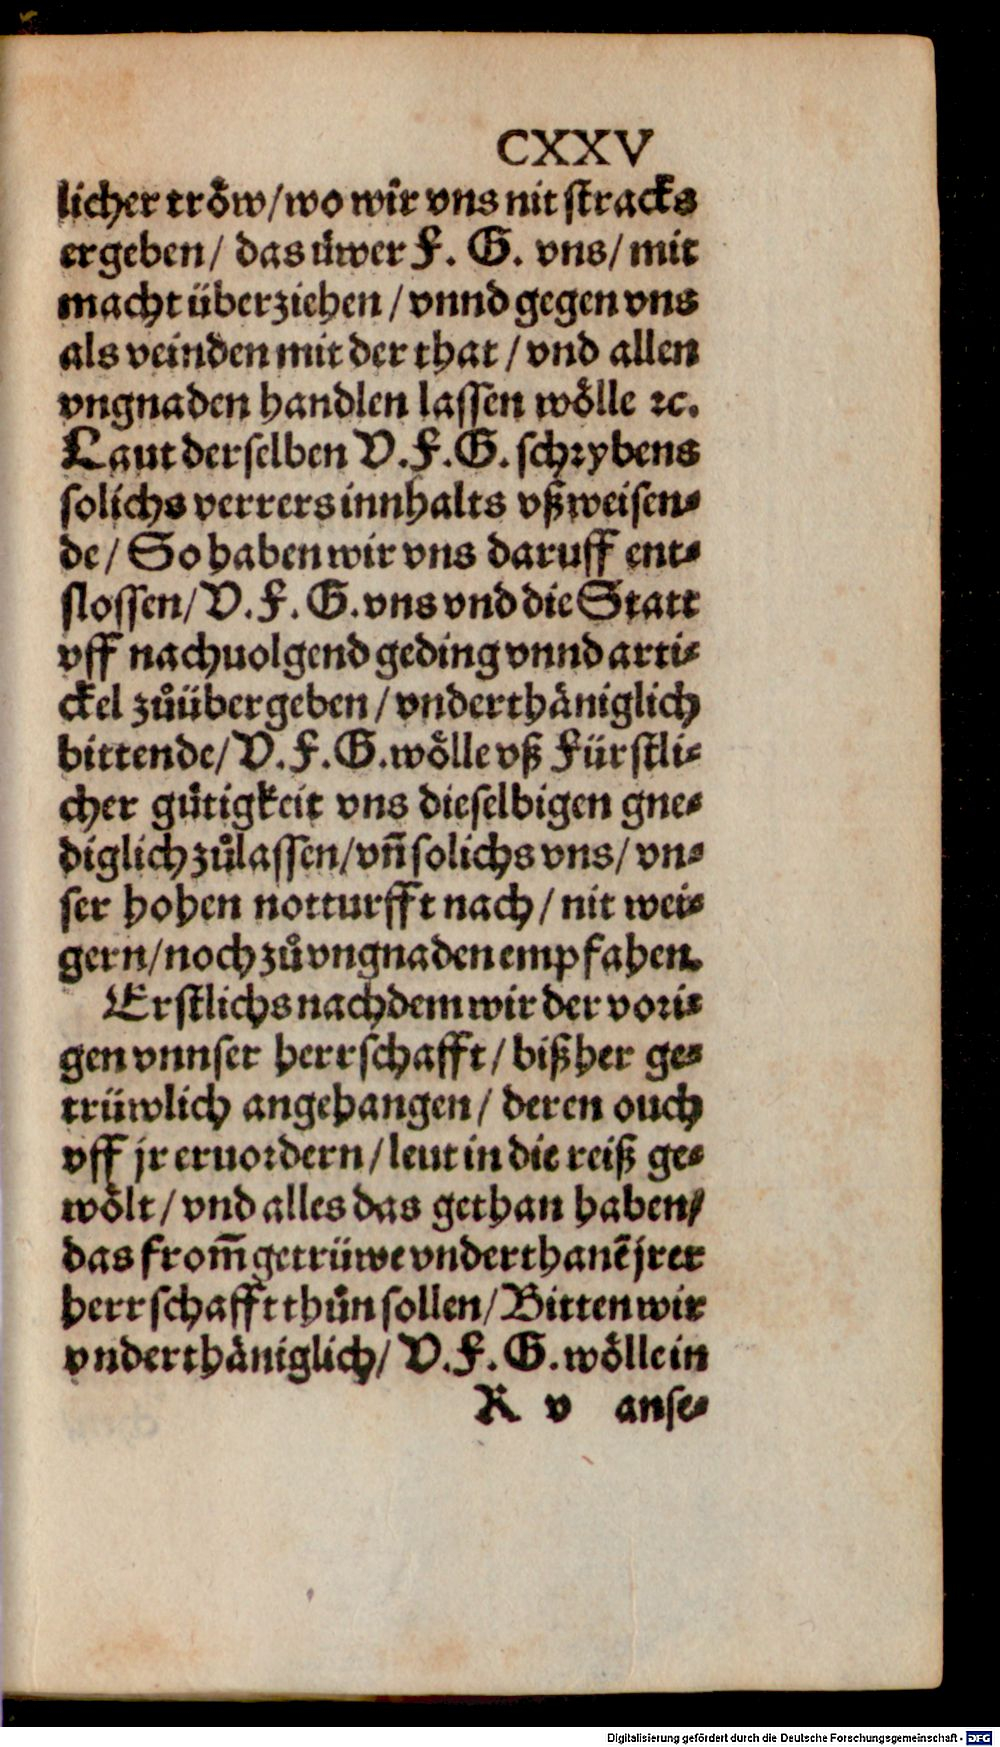 CXXV
licher tröw/wo wir vns nit stracks
ergeben/ das üwer F. G. vns/ mit
macht überziehen/vnnd gegen vns
als veinden mit der that/vnd allen
vngnaden handlen lassen wölle ꝛc.
Laut derselben V.F.G. schrybens
solichs verrers innhalts vßweisen⸗
de/ So haben wir vns daruff ent⸗
slossen/ V.F.G. vns vnd die Statt
vff nachuolgend geding vnnd arti⸗
ckel zůübergeben/vnderthäniglich
bittende/ V.F.G. wölle vß Fürstli⸗
cher gütigkeit vns dieselbigen gne⸗
diglich zůlassen/vñ solichs vns/ vn⸗
ser hohen notturfft nach/ nit wei⸗
gern/noch zů vngnaden empfahen.
Erstlichs nachdem wir der vori⸗
gen vnnser herrschafft/ bißher ge⸗
trüwlich angehangen/ deren ouch
vff jr eruordern/leut in die reiß ge⸗
wölt/ vnd alles das gethan haben/
das from̃ getrüwe vnderthanẽ jrer
herrschafft thůn sollen/ Bitten wir
vnderthäniglich/ V.F.G. wölle in
R v anse⸗
Digitalisierung gefördert durch die Deutsche Forschungsgemeinschaft - DFG